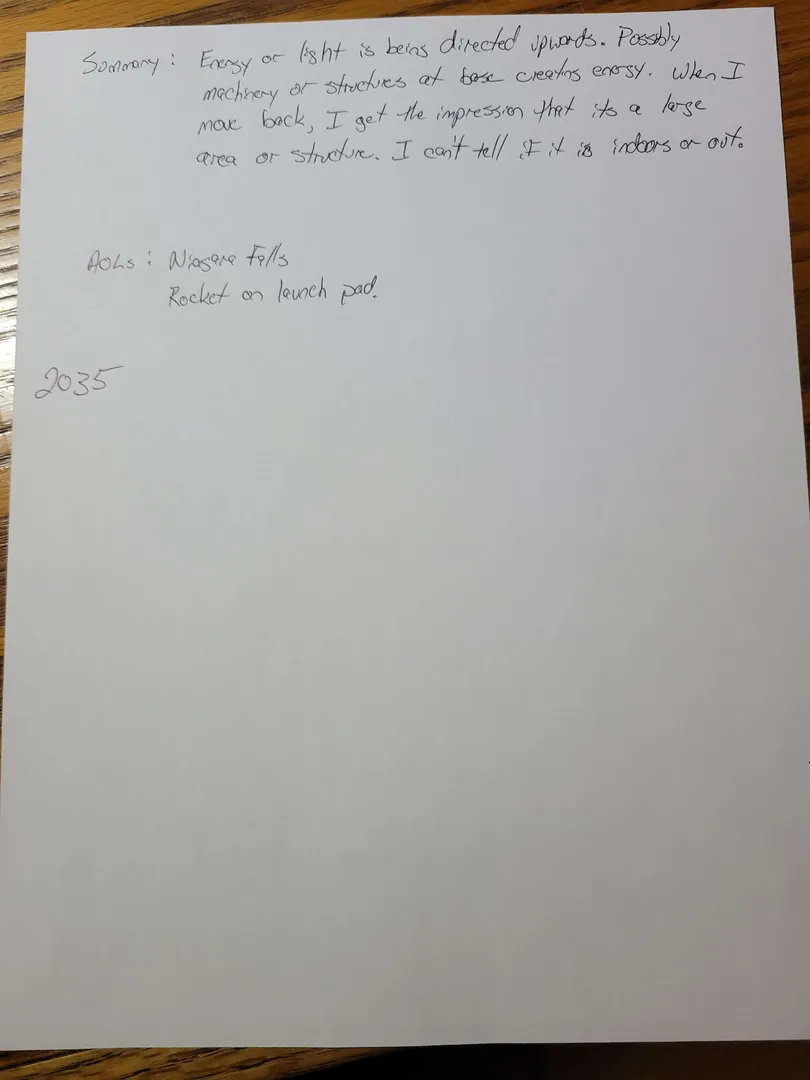 Summary: Energy or light is being directed upwards. Possibly
machinery or structures at base creating energy. When I
move back, I get the impression that its a large
area or structure. I can't tell if it is indoors or out.
AOLs: Niagara Falls
Rocket on launch pad.
2035